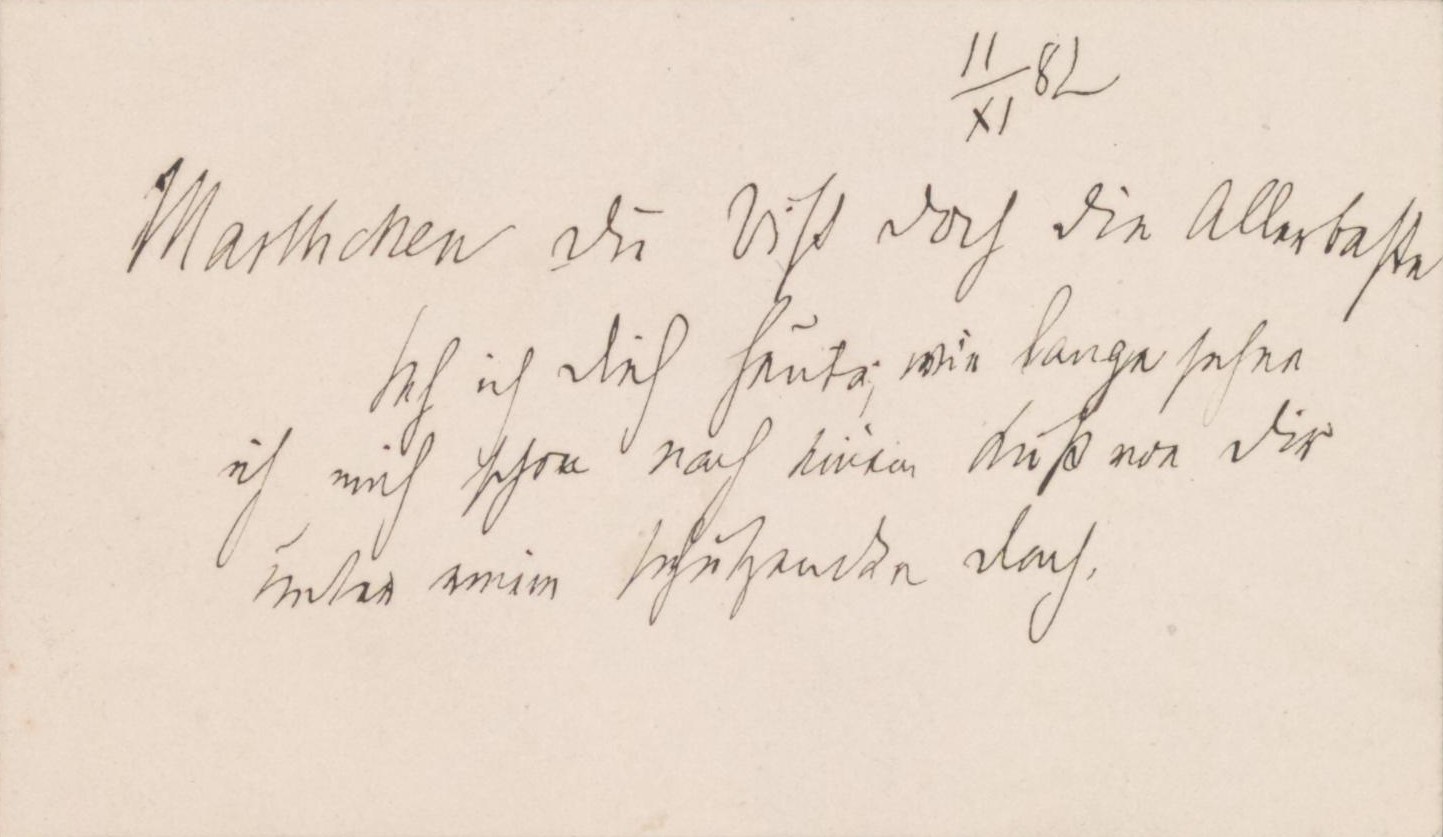 11/XI 82
Marthchen du bist doch die Allerbeste
Seh ich dich heute, wie lange sehne
ich mich schon nach einem Kuß von dir
unter einem schützenden Dach.